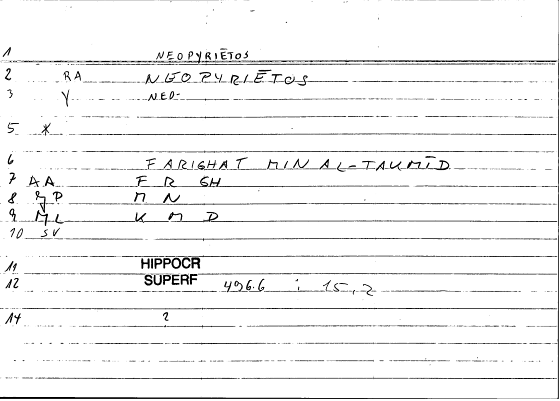 1 NEOPYRIĒTOS
2 RA NEOPYRIĒTOS
3 Y NEO-
5 *
6 FARIGHAT MIN AL-TAUMĪD
7 AA F R GH
8 M N
9 ML K M D
10 SV
11 HIPPOCR
12 SUPERF 496.6 : 15,2
14 2